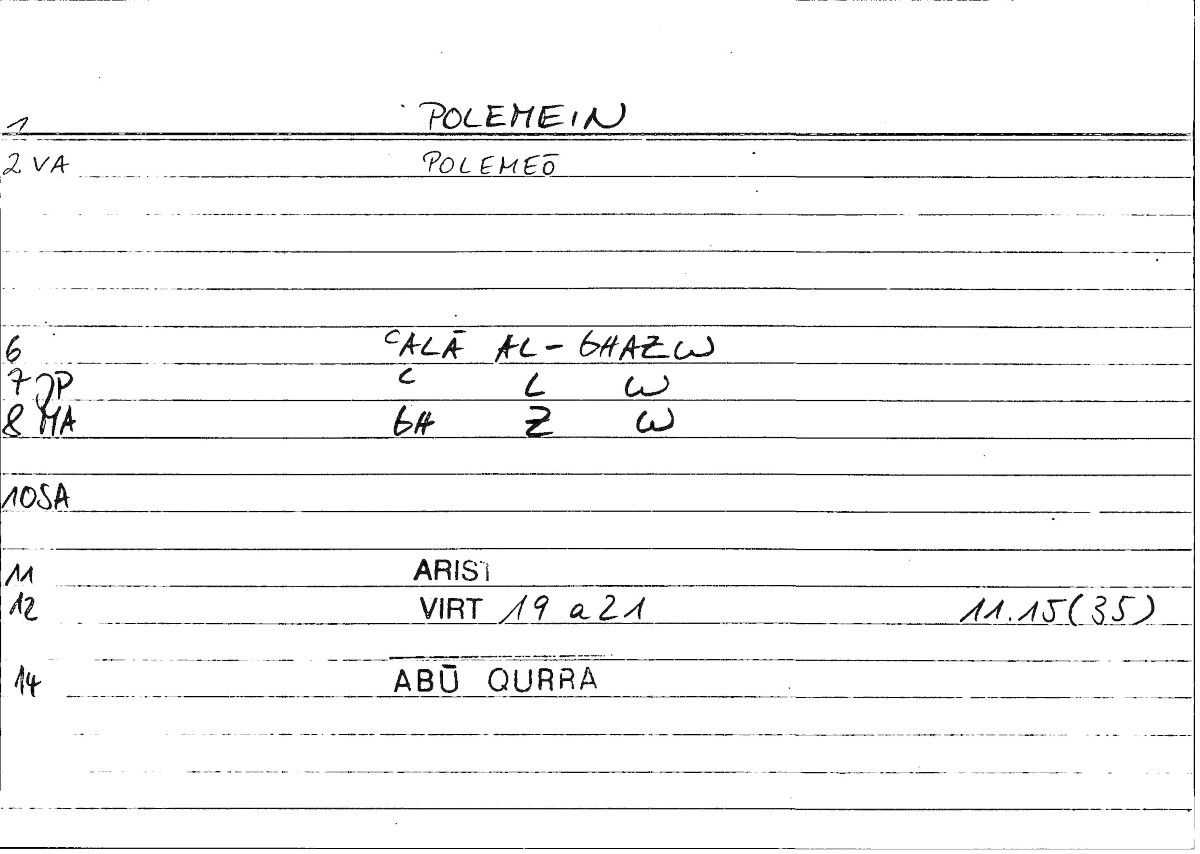 1 POLEMEIN
2 VA POLEMEŌ
6 ᶜALĀ AL-GHAZW
7 JP ᶜ L W
8 MA GH Z W
10 SA
11 ARIST
12 VIRT 19 a 21 11.15(35)
14 ABŪ QURRA